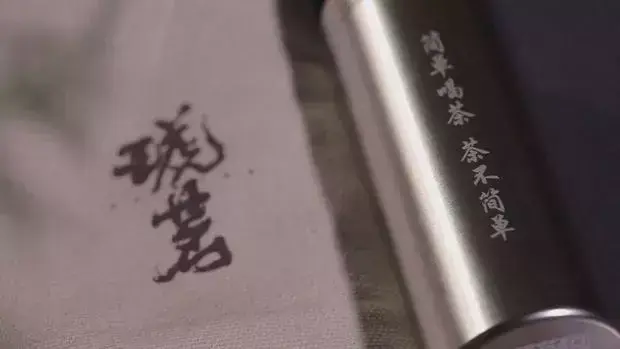 琥茗
简单喝茶 茶不简单